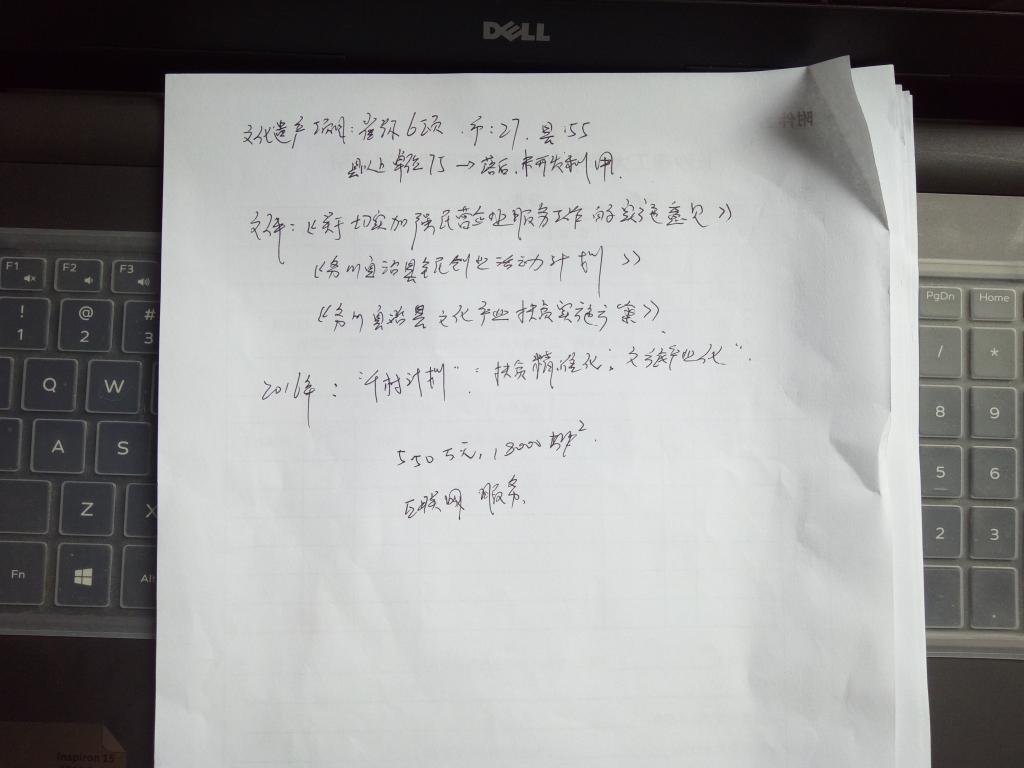 DELL
附件
文化遗产项目：省级6项．市：27．县：55
县以上单位75→落后，未开发利用．
文件：《关于切实加强民营企业服务工作的实施意见》
《务川自治县全民创业活动计划》
《务川自治县文化产业扶贫实施方案》．
2016年：“千村计划”：扶贫精准化；文 产业化”．
550万元，18000 m²．
互联网 服务．
F1
F2
F3
! 1
@ 2
# 3
Q
W
A
S
Z
X
Fn
Alt
PgDn
Home
/
*
8
9
5
6
2
3
.
Inspiron 15